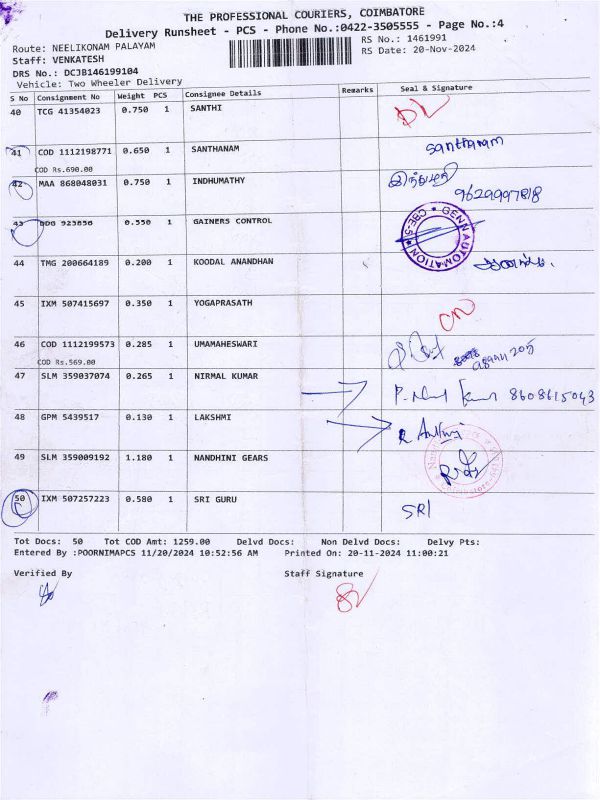 THE PROFESSIONAL COURIERS, COIMBATORE
Delivery Runsheet - PCS - Phone No.:0422-3505555 - Page No.:4
Route: NEELIKONAM PALAYAM RS No.: 1461991
Staff: VENKATESH RS Date: 20-Nov-2024
DRS No.: DCJB146199104
Vehicle: Two Wheeler Delivery
S No Consignment No Weight PCS Consignee Details Remarks Seal & Signature
40 TCG 41354023 0.750 1 SANTHI
41 COD 1112198771 0.650 1 SANTHANAM Santhanam
COD Rs.690.00
42 MAA 868048031 0.750 1 INDHUMATHY இந்துமதி
43 923656 0.550 1 GAINERS CONTROL GENN AUTOMATION CBE-5
44 TMG 200664189 0.200 1 KOODAL ANANDHAN
45 IXM 507415697 0.350 1 YOGAPRASATH
46 COD 1112199573 0.285 1 UMAMAHESWARI
COD Rs.569.00
47 SLM 359037074 0.265 1 NIRMAL KUMAR 8608615043
48 GPM 5439517 0.130 1 LAKSHMI
49 SLM 359009192 1.180 1 NANDHINI GEARS
50 IXM 507257223 0.580 1 SRI GURU SRI
Tot Docs: 50 Tot COD Amt: 1259.00 Delvd Docs: Non Delvd Docs: Delvy Pts:
Entered By :POORNIMAPCS 11/20/2024 10:52:56 AM Printed On: 20-11-2024 11:00:21
Verified By Staff Signature